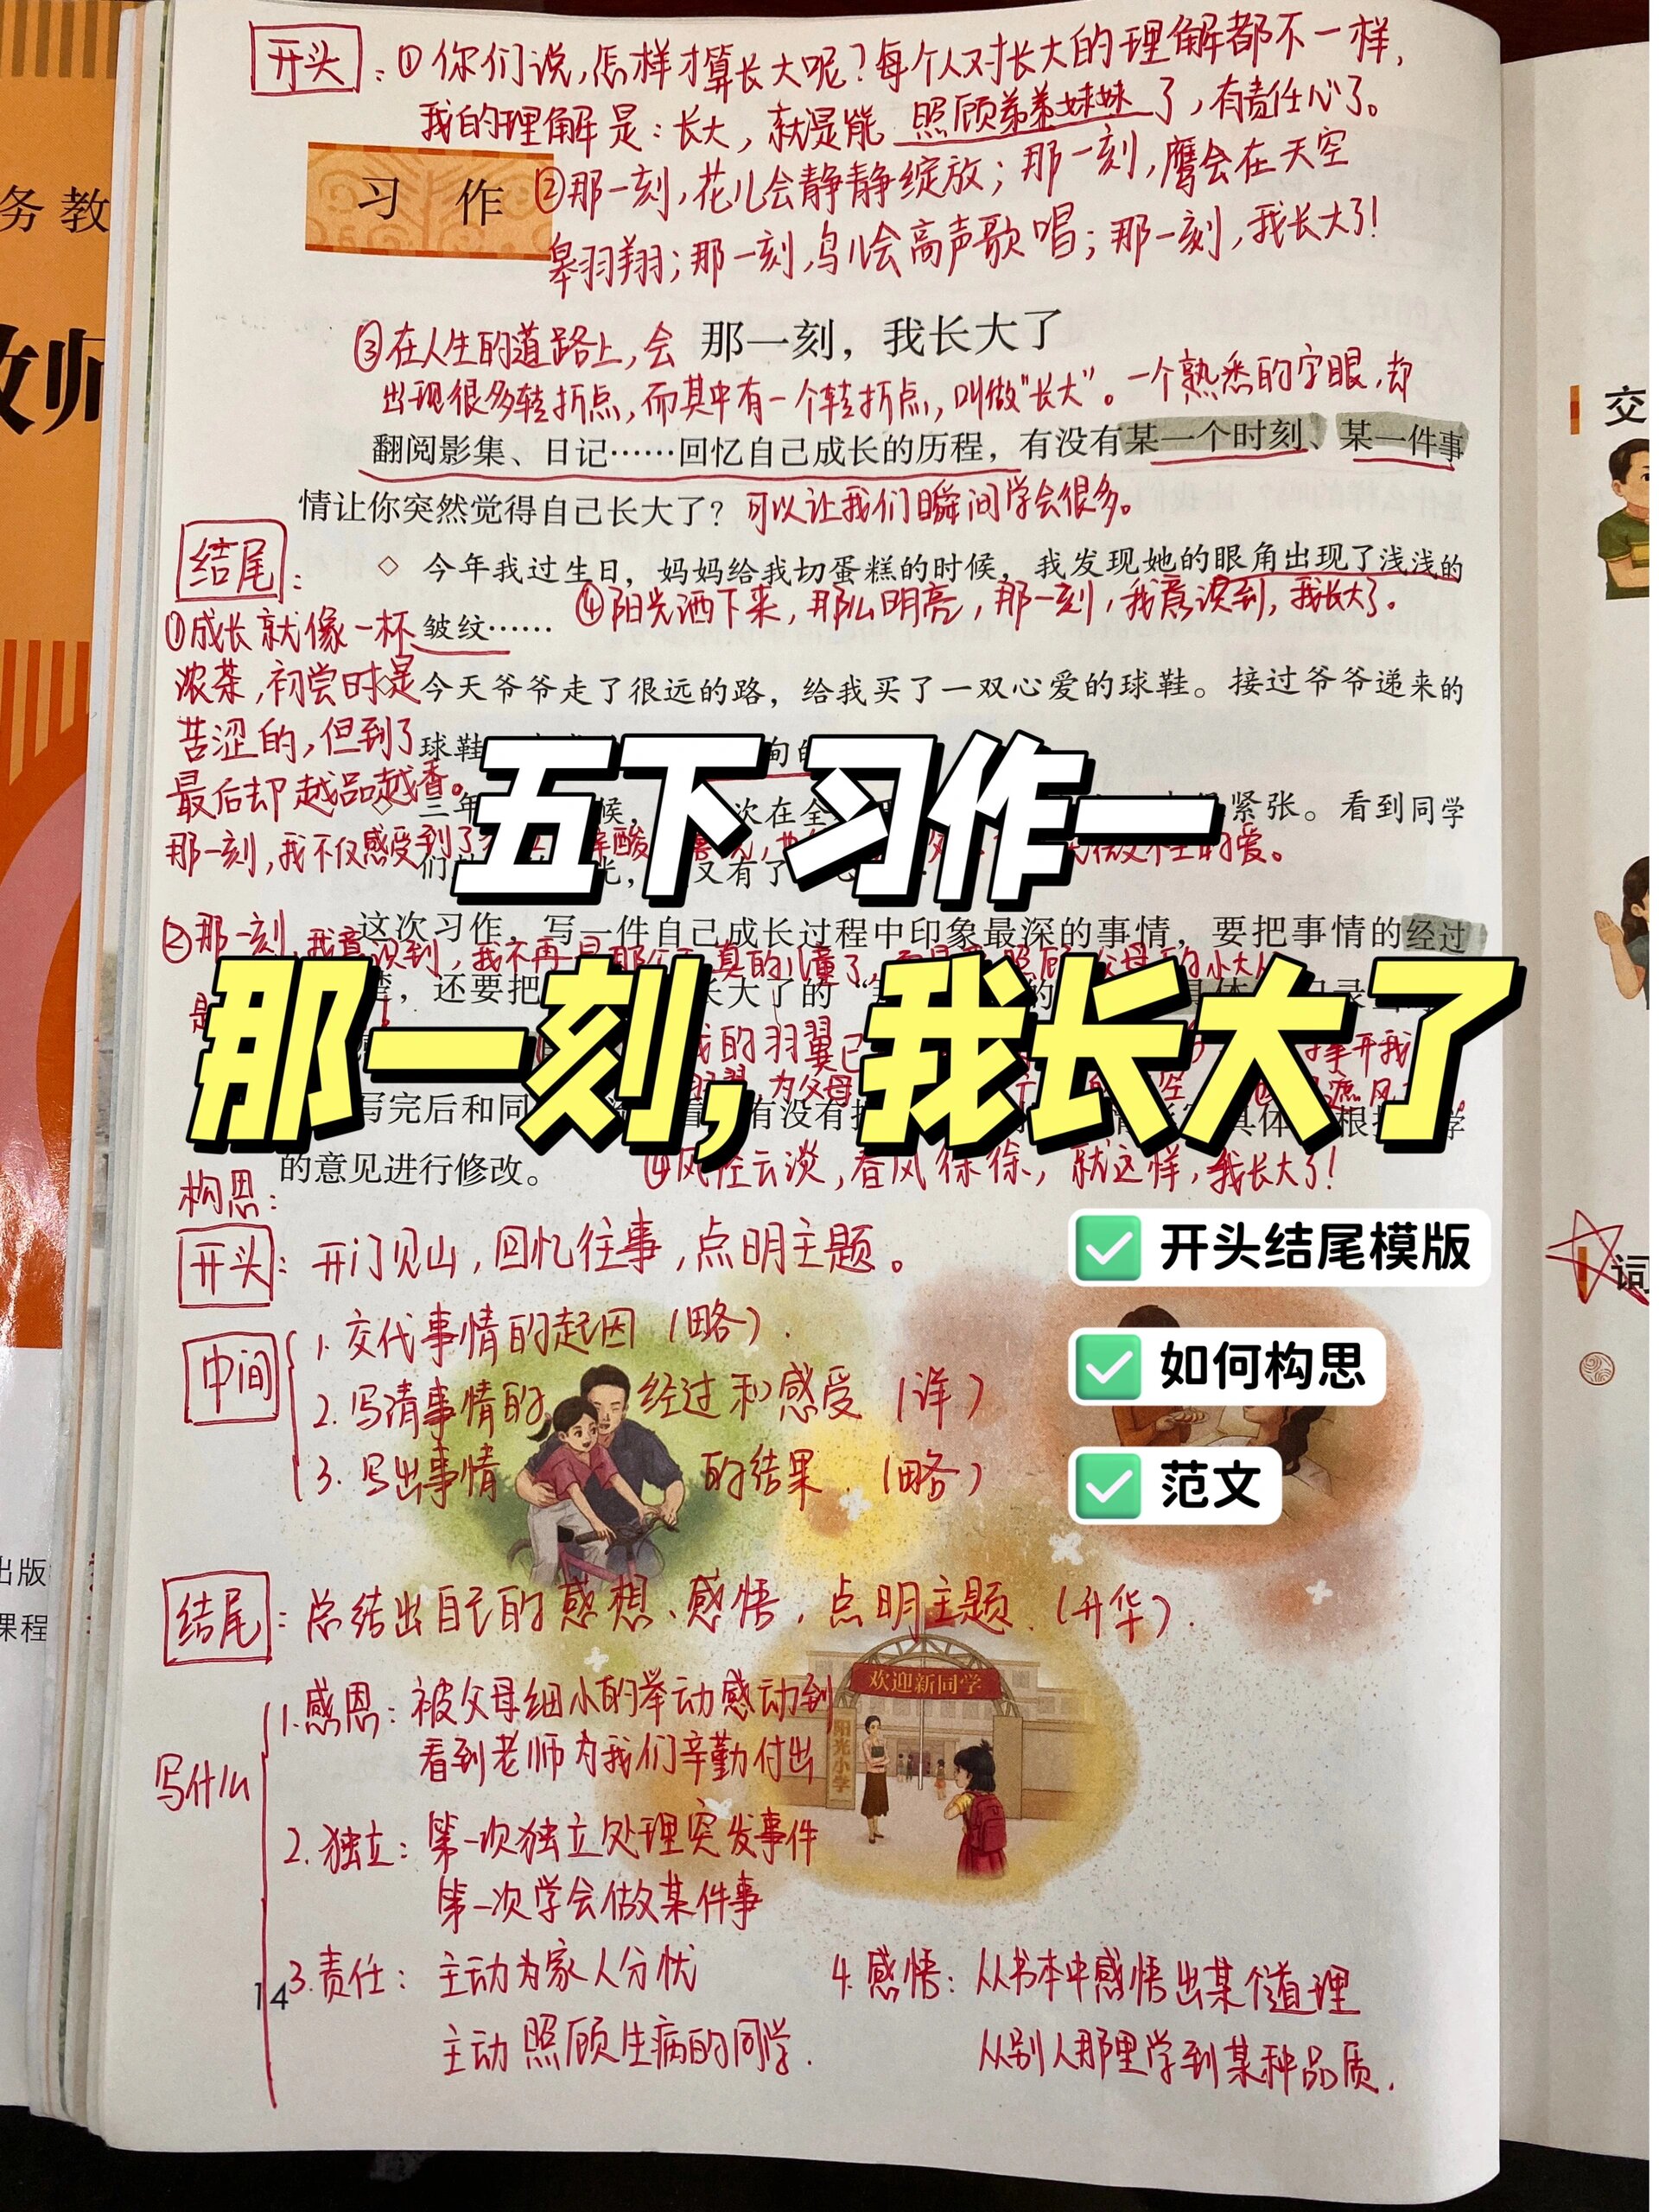 开头：①你们说,怎样才算长大呢?每个人对长大的理解都不一样,
我的理解是：长大，就是能照顾弟弟妹妹了，有责任心了。
习 作
②那一刻,花儿会静静绽放；那一刻,鹰会在天空
翱翔；那一刻,鸟儿会高声歌唱；那一刻,我长大了!
③在人生的道路上,会
那一刻，我长大了
出现很多转折点,而其中有一个转折点,叫做"长大"。一个熟悉的字眼,却
翻阅影集、日记……回忆自己成长的历程，有没有某一个时刻、某一件事
情让你突然觉得自己长大了？
可以让我们瞬间学会很多。
结尾：
◇ 今年我过生日，妈妈给我切蛋糕的时候，我发现她的眼角出现了浅浅的
④阳光洒下来,那么明亮,那一刻,我意识到,我长大了.
皱纹……
①成长就像一杯
浓茶,初尝时是
苦涩的,但到了
最后却越品越香。
今天爷爷走了很远的路，给我买了一双心爱的球鞋。接过爷爷递来的
球鞋
紧张。看到同学
那一刻,我不仅感受到了
的爱。
们
光，
又有了
五下 习作一
这次习作，写一件自己成长过程中印象最深的事情，要把事情的经过
②那一刻,我意识到,我不再是那个天真的儿童了,
还要把
长大了的
那一刻，我长大了
我的羽翼已
写完后和同
有没有
的意见进行修改。
④风轻云淡,春风徐徐,就这样,我长大了!
构思：
开头：开门见山,回忆往事,点明主题。
中间
1.交代事情的起因(略).
2.写清事情的经过和感受(详)
3.写出事情的结果.(略)
✅ 开头结尾模版
✅ 如何构思
✅ 范文
结尾：总结出自己的感想、感悟.点明主题.(升华).
欢迎新同学
阳光小学
写什么
1.感恩：被父母细小的举动感动到
看到老师为我们辛勤付出
2.独立：第一次独立处理突发事件
第一次学会做某件事
3.责任：主动为家人分忧
主动照顾生病的同学.
4.感悟：从书本中感悟出某个道理
从别人那里学到某种品质.
14
务教
教师
出版
课程
交
词